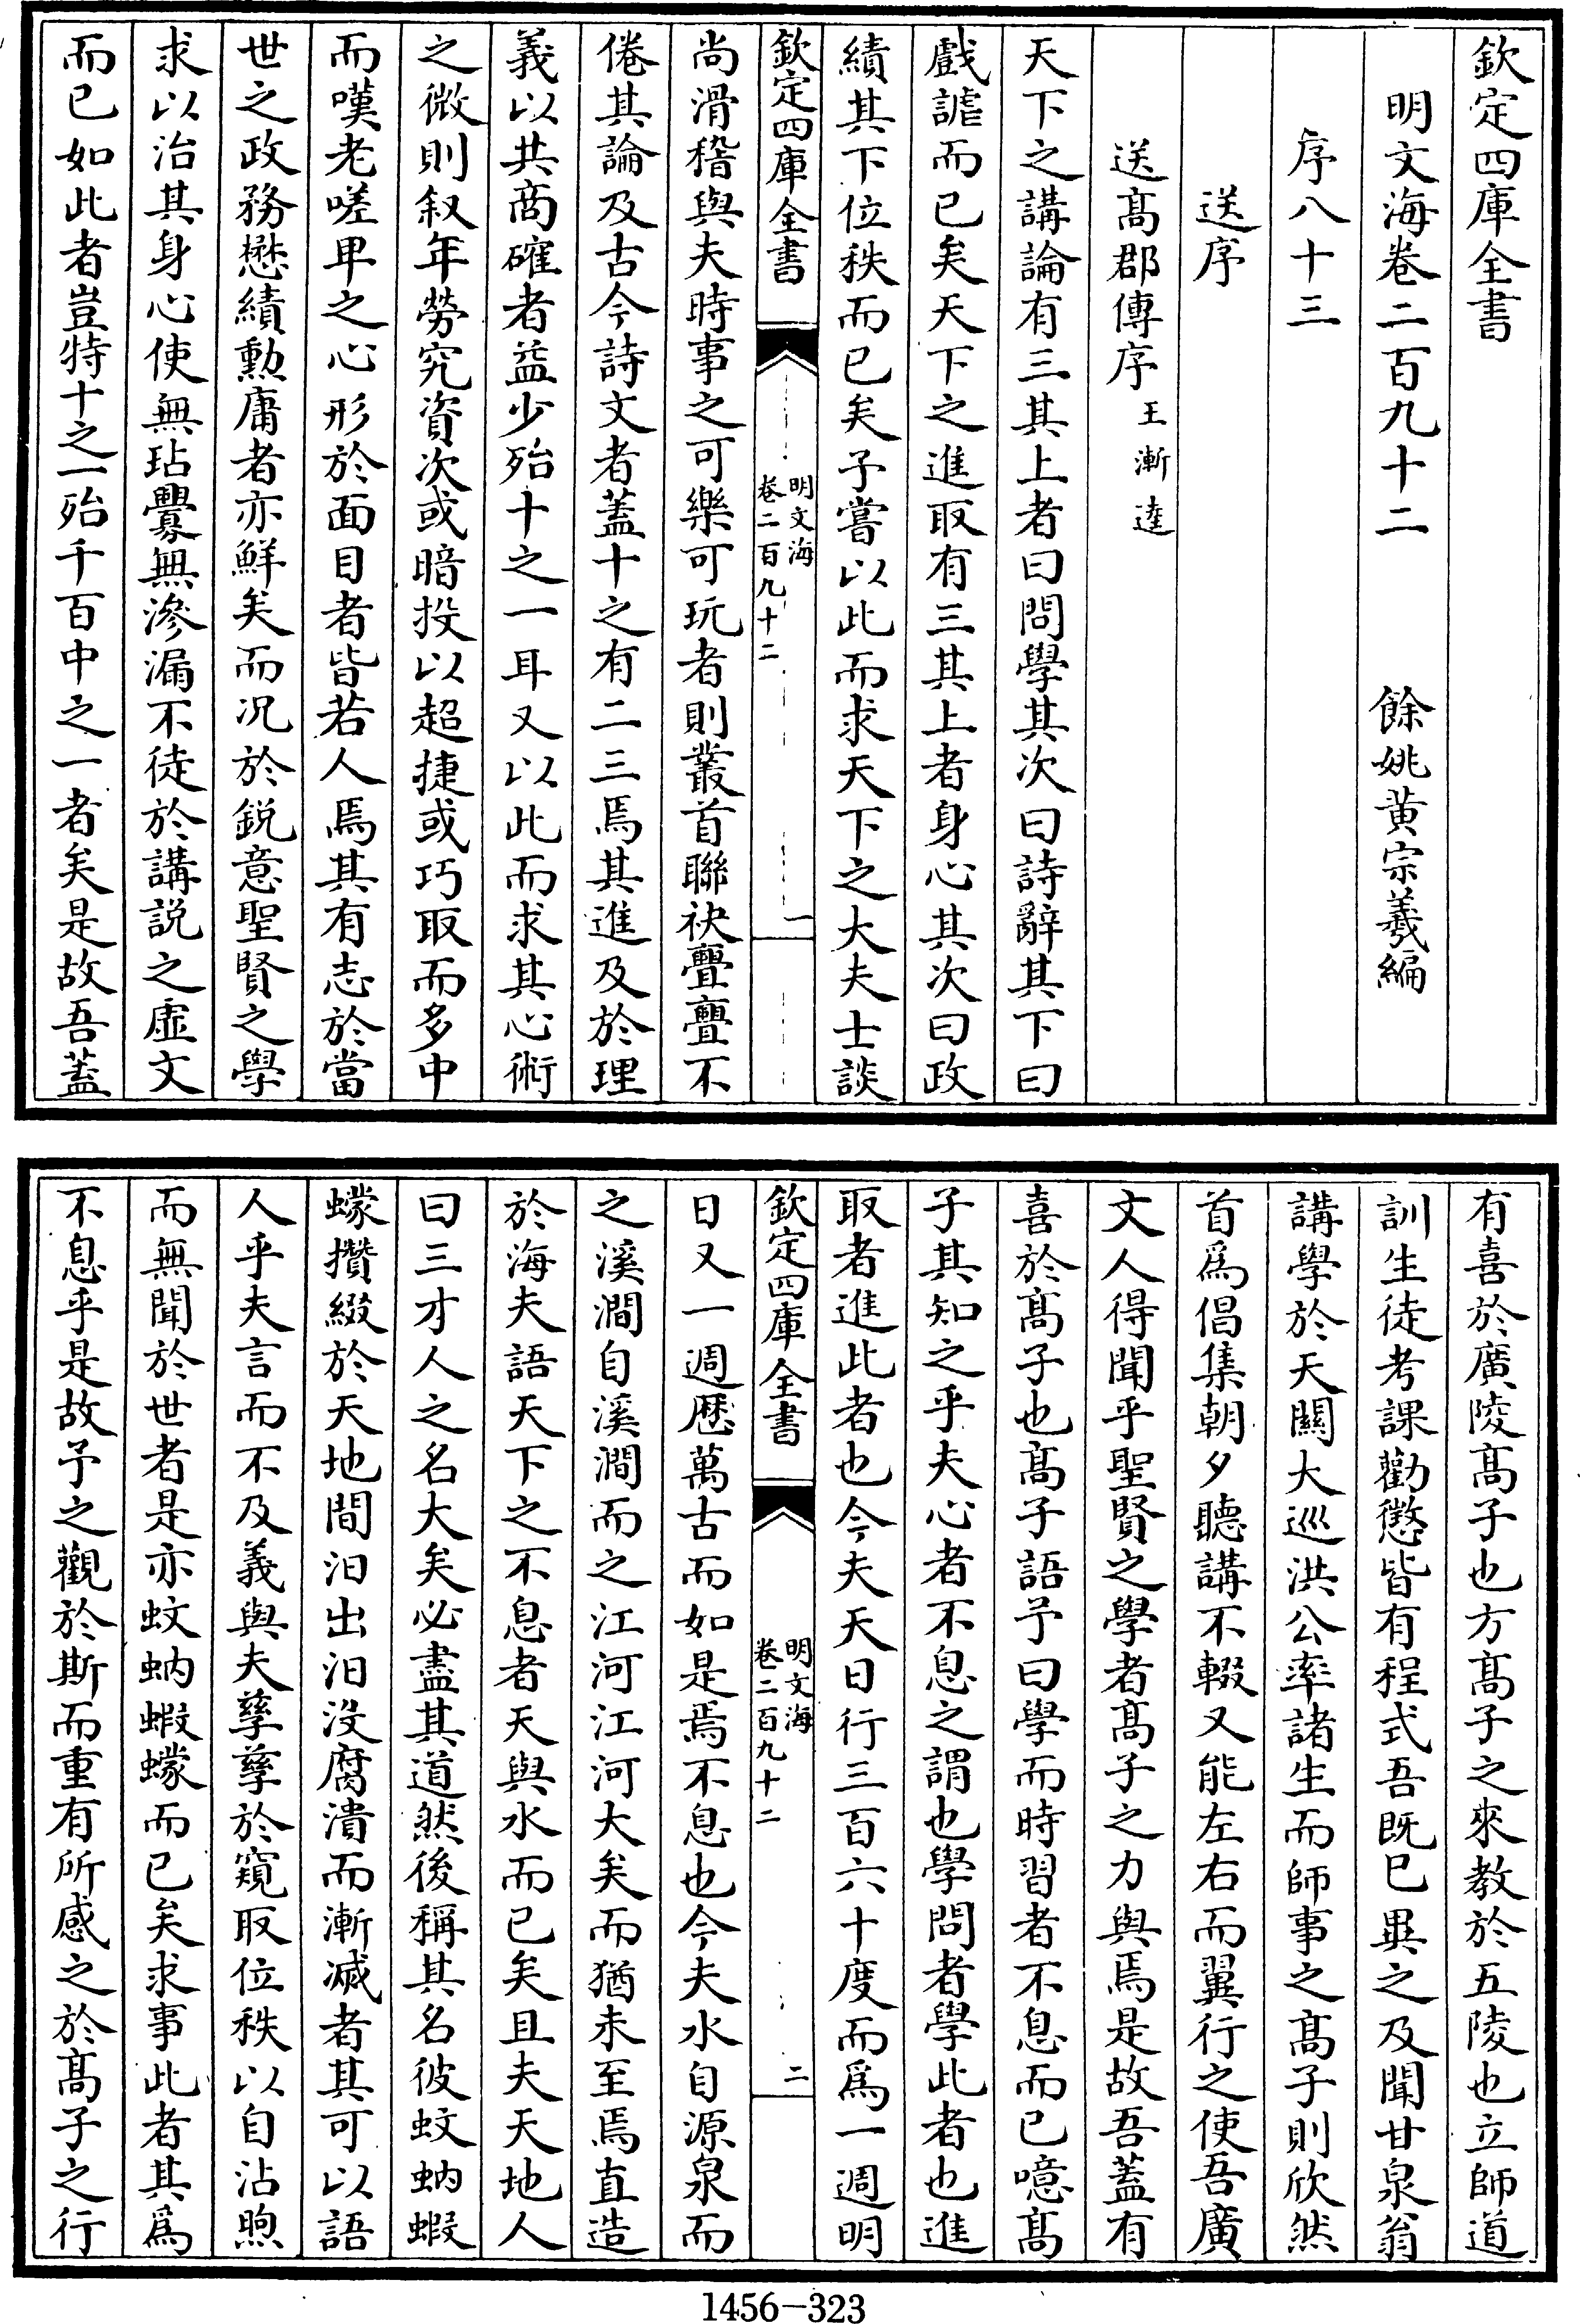 欽定四庫全書
明文海卷二百九十二 餘姚黄宗羲編
序八十三
送序
送髙郡傳序 王漸逵
天下之講論有三其上者曰問學其次曰詩辭其下曰
戲謔而已矣天下之進取有三其上者身心其次曰政
績其下位秩而已矣子嘗以此而求天下之大夫士談
欽定四庫全書 明文海 卷二百九十二 一
尚滑稽與夫時事之可樂可玩者則叢首聯袂亹亹不
倦其論及古今詩文者蓋十之有二三焉其進及於理
義以共商確者益少殆十之一耳又以此而求其心術
之微則叙年勞究資次或暗投以超捷或巧取而多中
而嘆老嗟卑之心形於面目者皆若人焉其有志於當
世之政務懋績勲庸者亦鮮矣而况於鋭意聖賢之學
求以治其身心使無玷釁無滲漏不徒於講説之虛文
而已如此者豈特十之一殆千百中之一者矣是故吾蓋
有喜於廣陵髙子也方髙子之來教於五陵也立師道
訓生徒考課勸懲皆有程式吾既已異之及聞甘泉翁
講學於天闗大巡洪公率諸生而師事之髙子則欣然
首爲倡集朝夕聽講不輟又能左右而翼行之使吾廣
文人得聞乎聖賢之學者髙子之力與焉是故吾蓋有
喜於髙子也髙子語予曰學而時習者不息而已噫髙
子其知之乎夫心者不息之謂也學問者學此者也進
取者進此者也今夫天日行三百六十度而爲一週明
欽定四庫全書 明文海 卷二百九十二 二
日又一週厯萬古而如是焉不息也今夫水自源泉而
之溪澗自溪澗而之江河江河大矣而猶未至焉直造
於海夫語天下之不息者天與水而已矣且夫天地人
曰三才人之名大矣必盡其道然後稱其名彼蚊蚋蝦
蠓攢綴於天地間汨出汨沒腐潰而漸滅者其可以語
人乎夫言而不及義與夫孳孳於窺取位秩以自沾喣
而無聞於世者是亦蚊蚋蝦蠓而已矣求事此者其爲
不息乎是故予之觀於斯而重有所感之於髙子之行
1456-323